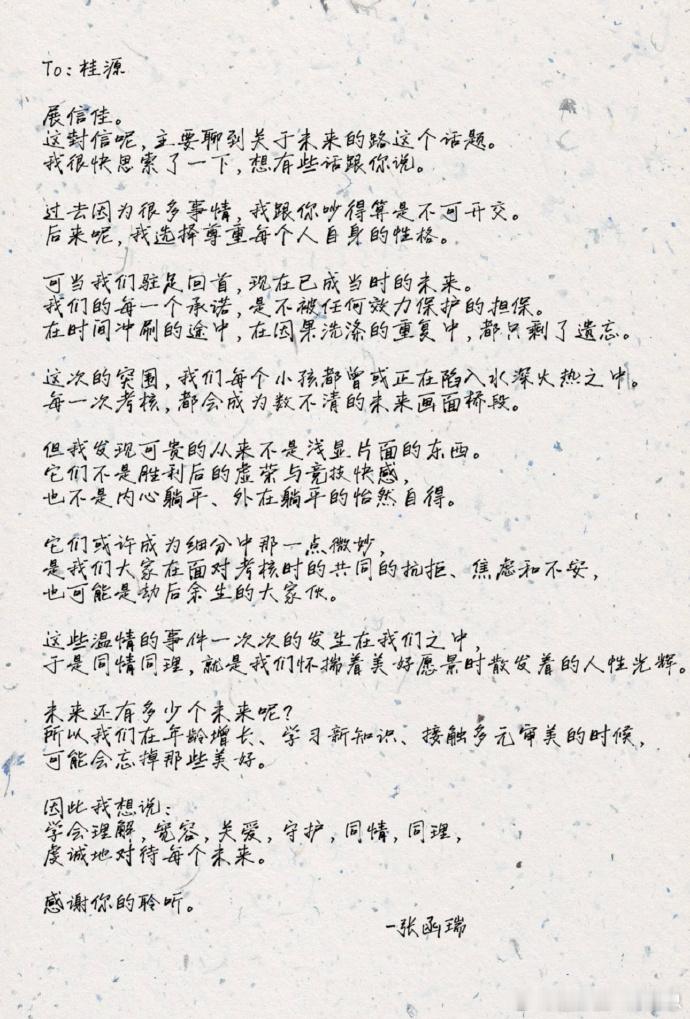 To：桂源
展信佳。
这封信呢，主要聊到关于未来的路这个话题。
我很快思索了一下，想有些话跟你说。
过去因为很多事情，我跟你吵得算是不可开交。
后来呢，我选择尊重每个人自身的性格。
可当我们驻足回首，现在已成当时的未来。
我们的每一个承诺，是不被任何效力保护的担保。
在时间冲刷的途中，在因果洗涤的重复中，都只剩了遗忘。
这次的突围，我们每个小孩都曾或正在陷入水深火热之中。
每一次考核，都会成为数不清的未来画面桥段。
但我发现可贵的从来不是浅显片面的东西。
它们不是胜利后的虚荣与竞技快感，
也不是内心躺平、外在躺平的怡然自得。
它们或许成为细分中那一点微妙，
是我们大家在面对考核时的共同的抗拒、焦虑和不安，
也可能是劫后余生的大家伙。
这些温情的事件一次次的发生在我们之中，
于是同情同理，就是我们怀揣着美好愿景时散发着的人性光辉。
未来还有多少个未来呢？
所以我们在年龄增长、学习新知识、接触多元审美的时候，
可能会忘掉那些美好。
因此我想说：
学会理解，宽容，关爱，守护，同情，同理，
虔诚地对待每个未来。
感谢你的聆听。
-张函瑞